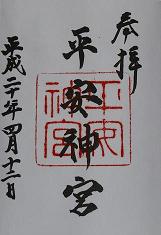 奉拝
平安神宮
平安神宮
平成二十年四月十二日